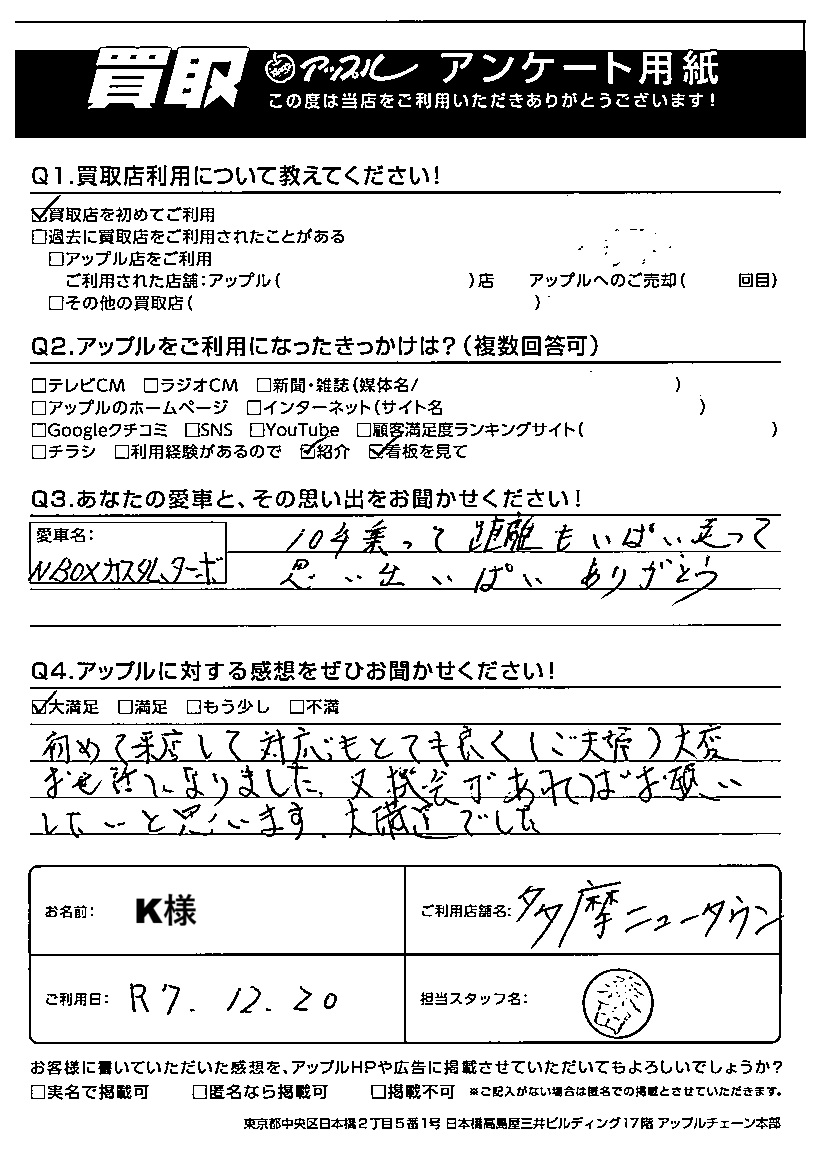 買取 アップル アンケート用紙
この度は当店をご利用いただきありがとうございます!
Q1.買取店利用について教えてください!
☑買取店を初めてご利用
□過去に買取店をご利用されたことがある
□アップル店をご利用
ご利用された店舗:アップル( )店 アップルへのご売却( 回目)
□その他の買取店( )
Q2.アップルをご利用になったきっかけは?(複数回答可)
□テレビCM □ラジオCM □新聞・雑誌(媒体名/ )
□アップルのホームページ □インターネット(サイト名 )
□Googleクチコミ □SNS □YouTube □顧客満足度ランキングサイト( )
□チラシ □利用経験があるので ☑紹介 ☑看板を見て
Q3.あなたの愛車と、その思い出をお聞かせください!
愛車名: 10年乗って 距離もいぱい走って
NBOXカスタムターボ 思い出いぱい ありがとう
Q4.アップルに対する感想をぜひお聞かせください!
☑大満足 □満足 □もう少し □不満
初めて来店して対応もとても良く(ご夫婦)大変
お世話になりました。又機会があればお願い
したいと思います。大満足でした
お名前: K様 ご利用店舗名: 多摩ニュータウン
ご利用日: R7. 12. 20 担当スタッフ名:
お客様に書いていただいた感想を、アップルHPや広告に掲載させていただいてもよろしいでしょうか?
□実名で掲載可 □匿名なら掲載可 □掲載不可 ※ご記入がない場合は匿名での掲載とさせていただきます。
東京都中央区日本橋2丁目5番1号 日本橋高島屋三井ビルディング17階 アップルチェーン本部